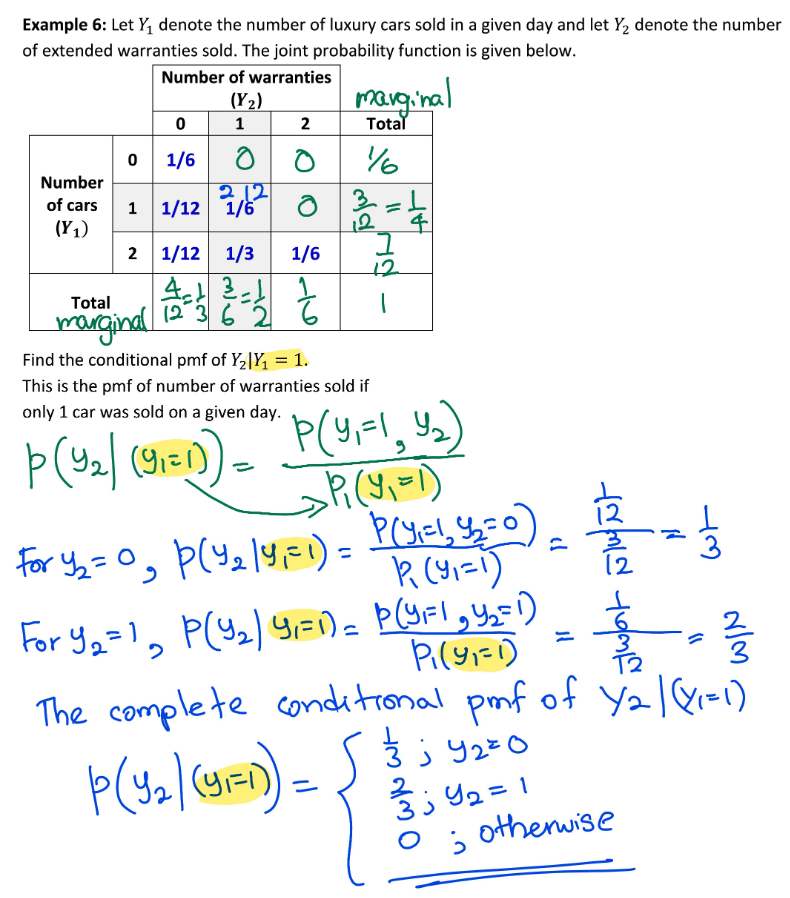 Example 6: Let Y₁ denote the number of luxury cars sold in a given day and let Y₂ denote the number
of extended warranties sold. The joint probability function is given below.
Number of warranties
(Y₂)
marginal
0 1 2 Total
0 1/6 0 0 1/6
Number
of cars
(Y₁)
2 12
1 1/12 1/6 0 3/12 = 1/4
2 1/12 1/3 1/6 7/12
Total
marginal
4/12 = 1/3 3/6 = 1/2 1/6 1
Find the conditional pmf of Y₂|Y₁ = 1.
This is the pmf of number of warranties sold if
only 1 car was sold on a given day.
p(y₂|(y₁=1)) = p(y₁=1, y₂) / p₁(y₁=1)
For y₂=0, p(y₂|y₁=1) = p(y₁=1, y₂=0) / p₁(y₁=1) = (1/12) / (3/12) = 1/3
For y₂=1, p(y₂|y₁=1) = p(y₁=1, y₂=1) / p₁(y₁=1) = (1/6) / (3/12) = 2/3
The complete conditional pmf of Y₂|(Y₁=1)
p(y₂|(y₁=1)) = {
1/3 ; y₂=0
2/3 ; y₂=1
0 ; otherwise